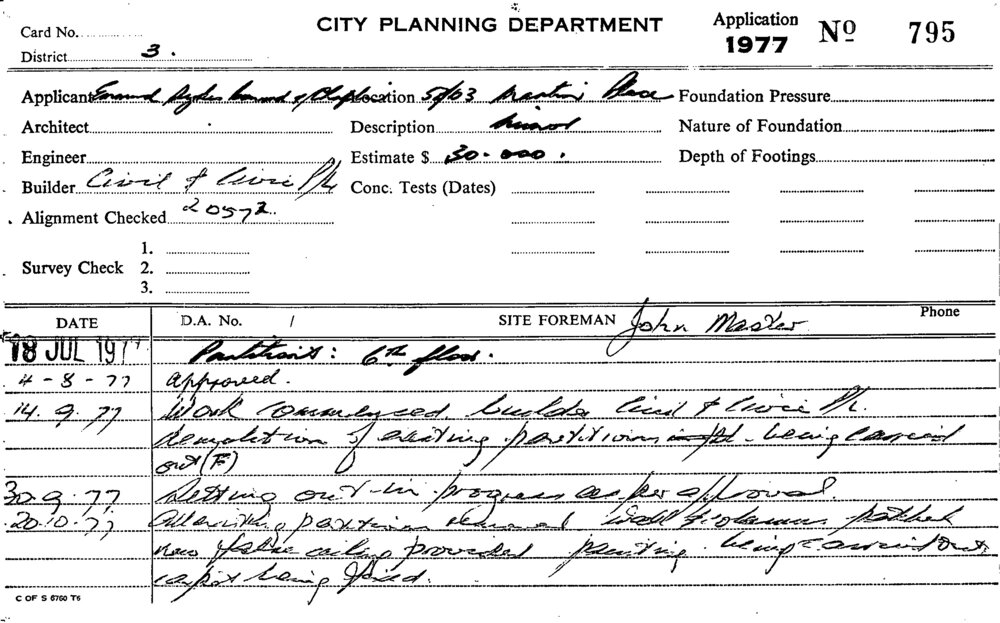 CITY PLANNING DEPARTMENT
Card No.
District 3.
Application 1977 No 795
Applicant Location 50/53 Martin Place Foundation Pressure
Architect Description minor Nature of Foundation
Engineer Estimate $ 30.000. Depth of Footings
Builder Civil & Civic P/L Conc. Tests (Dates)
Alignment Checked 20572
1.
Survey Check 2.
3.
DATE D.A. No. / SITE FOREMAN John Master Phone
18 JUL 197 Partitions: 6th floor.
4-8-77 approved.
14.9.77 Work commenced builder Civil & Civic P/L.
demolition of existing partitions being carried
out (F)
30.9.77 Setting out in progress as per approval.
20.10.77 partition removed wall & columns patched
new false ceiling provided painting being carried out
carpet being fixed.
C OF S 6760 T6